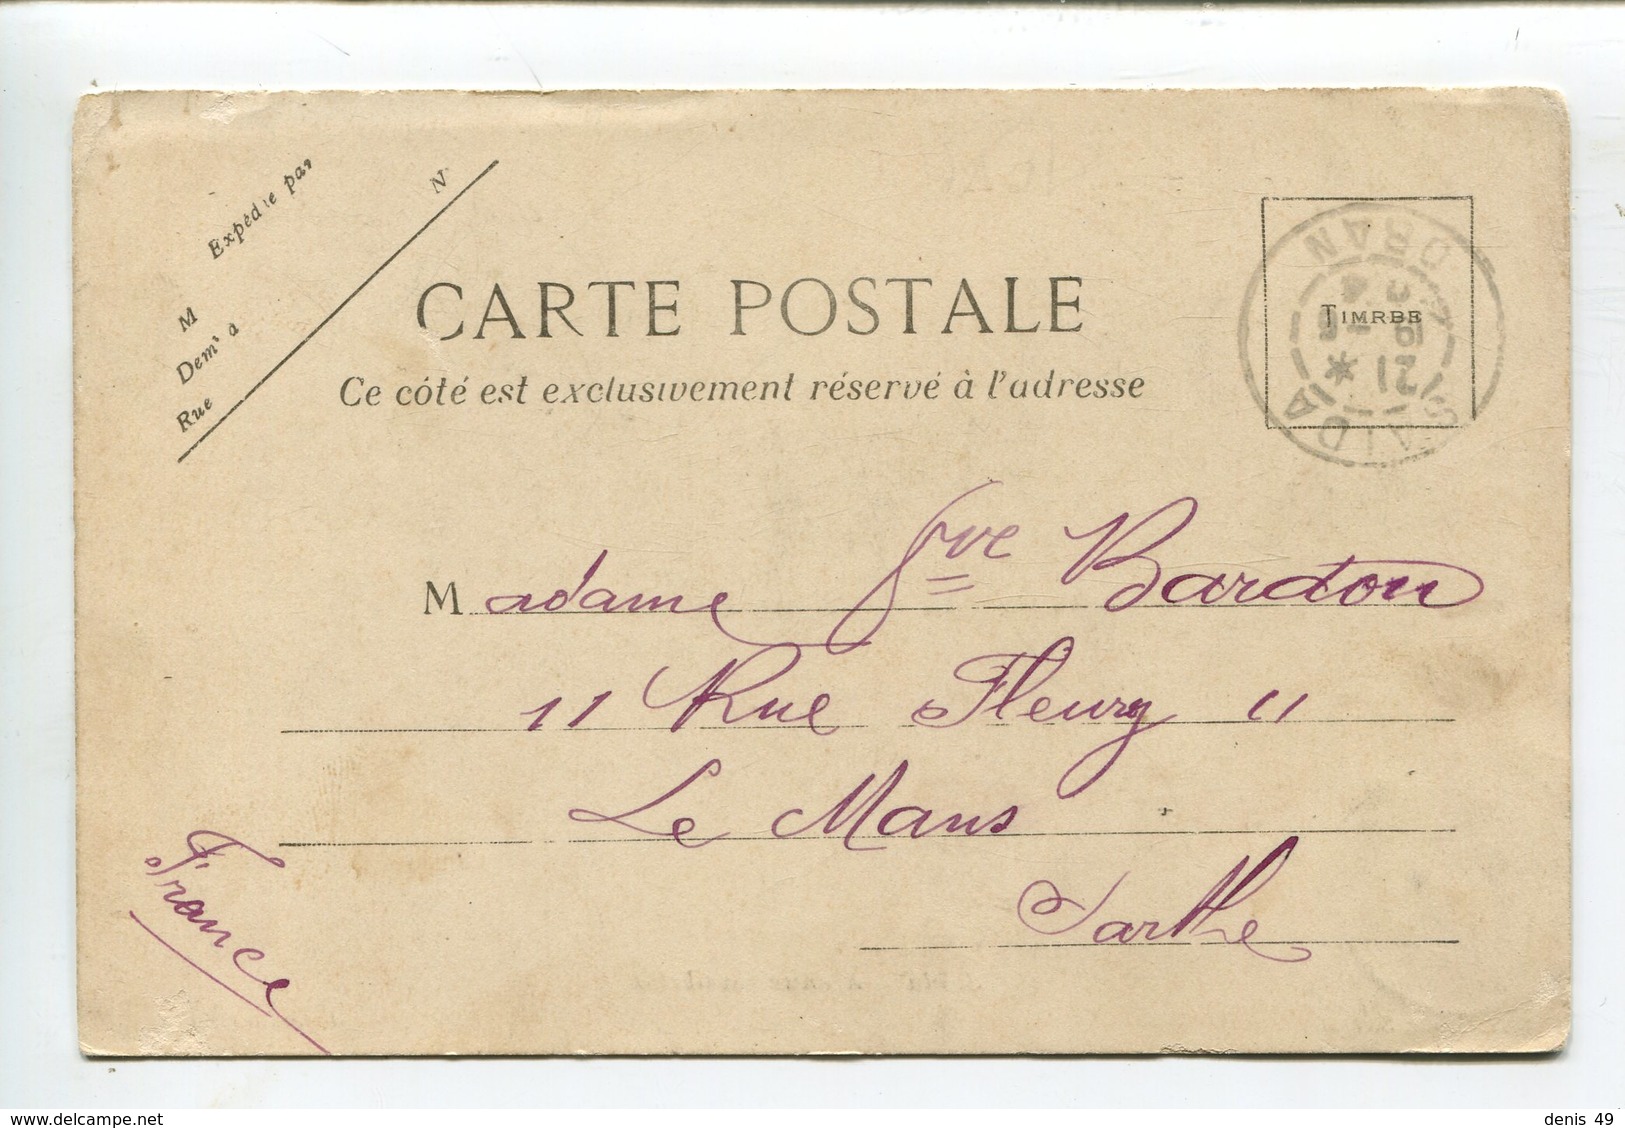 Expédie par
N
M
Demt a
Rue
CARTE POSTALE
Ce côté est exclusivement réservé à l'adresse
TIMRBE
SAIDA
ORAN
21
19
4
Madame Gve Bardou
11 Rue Fleury 11
Le Mans
Sarthe
France
www.delcampe.net
denis 49